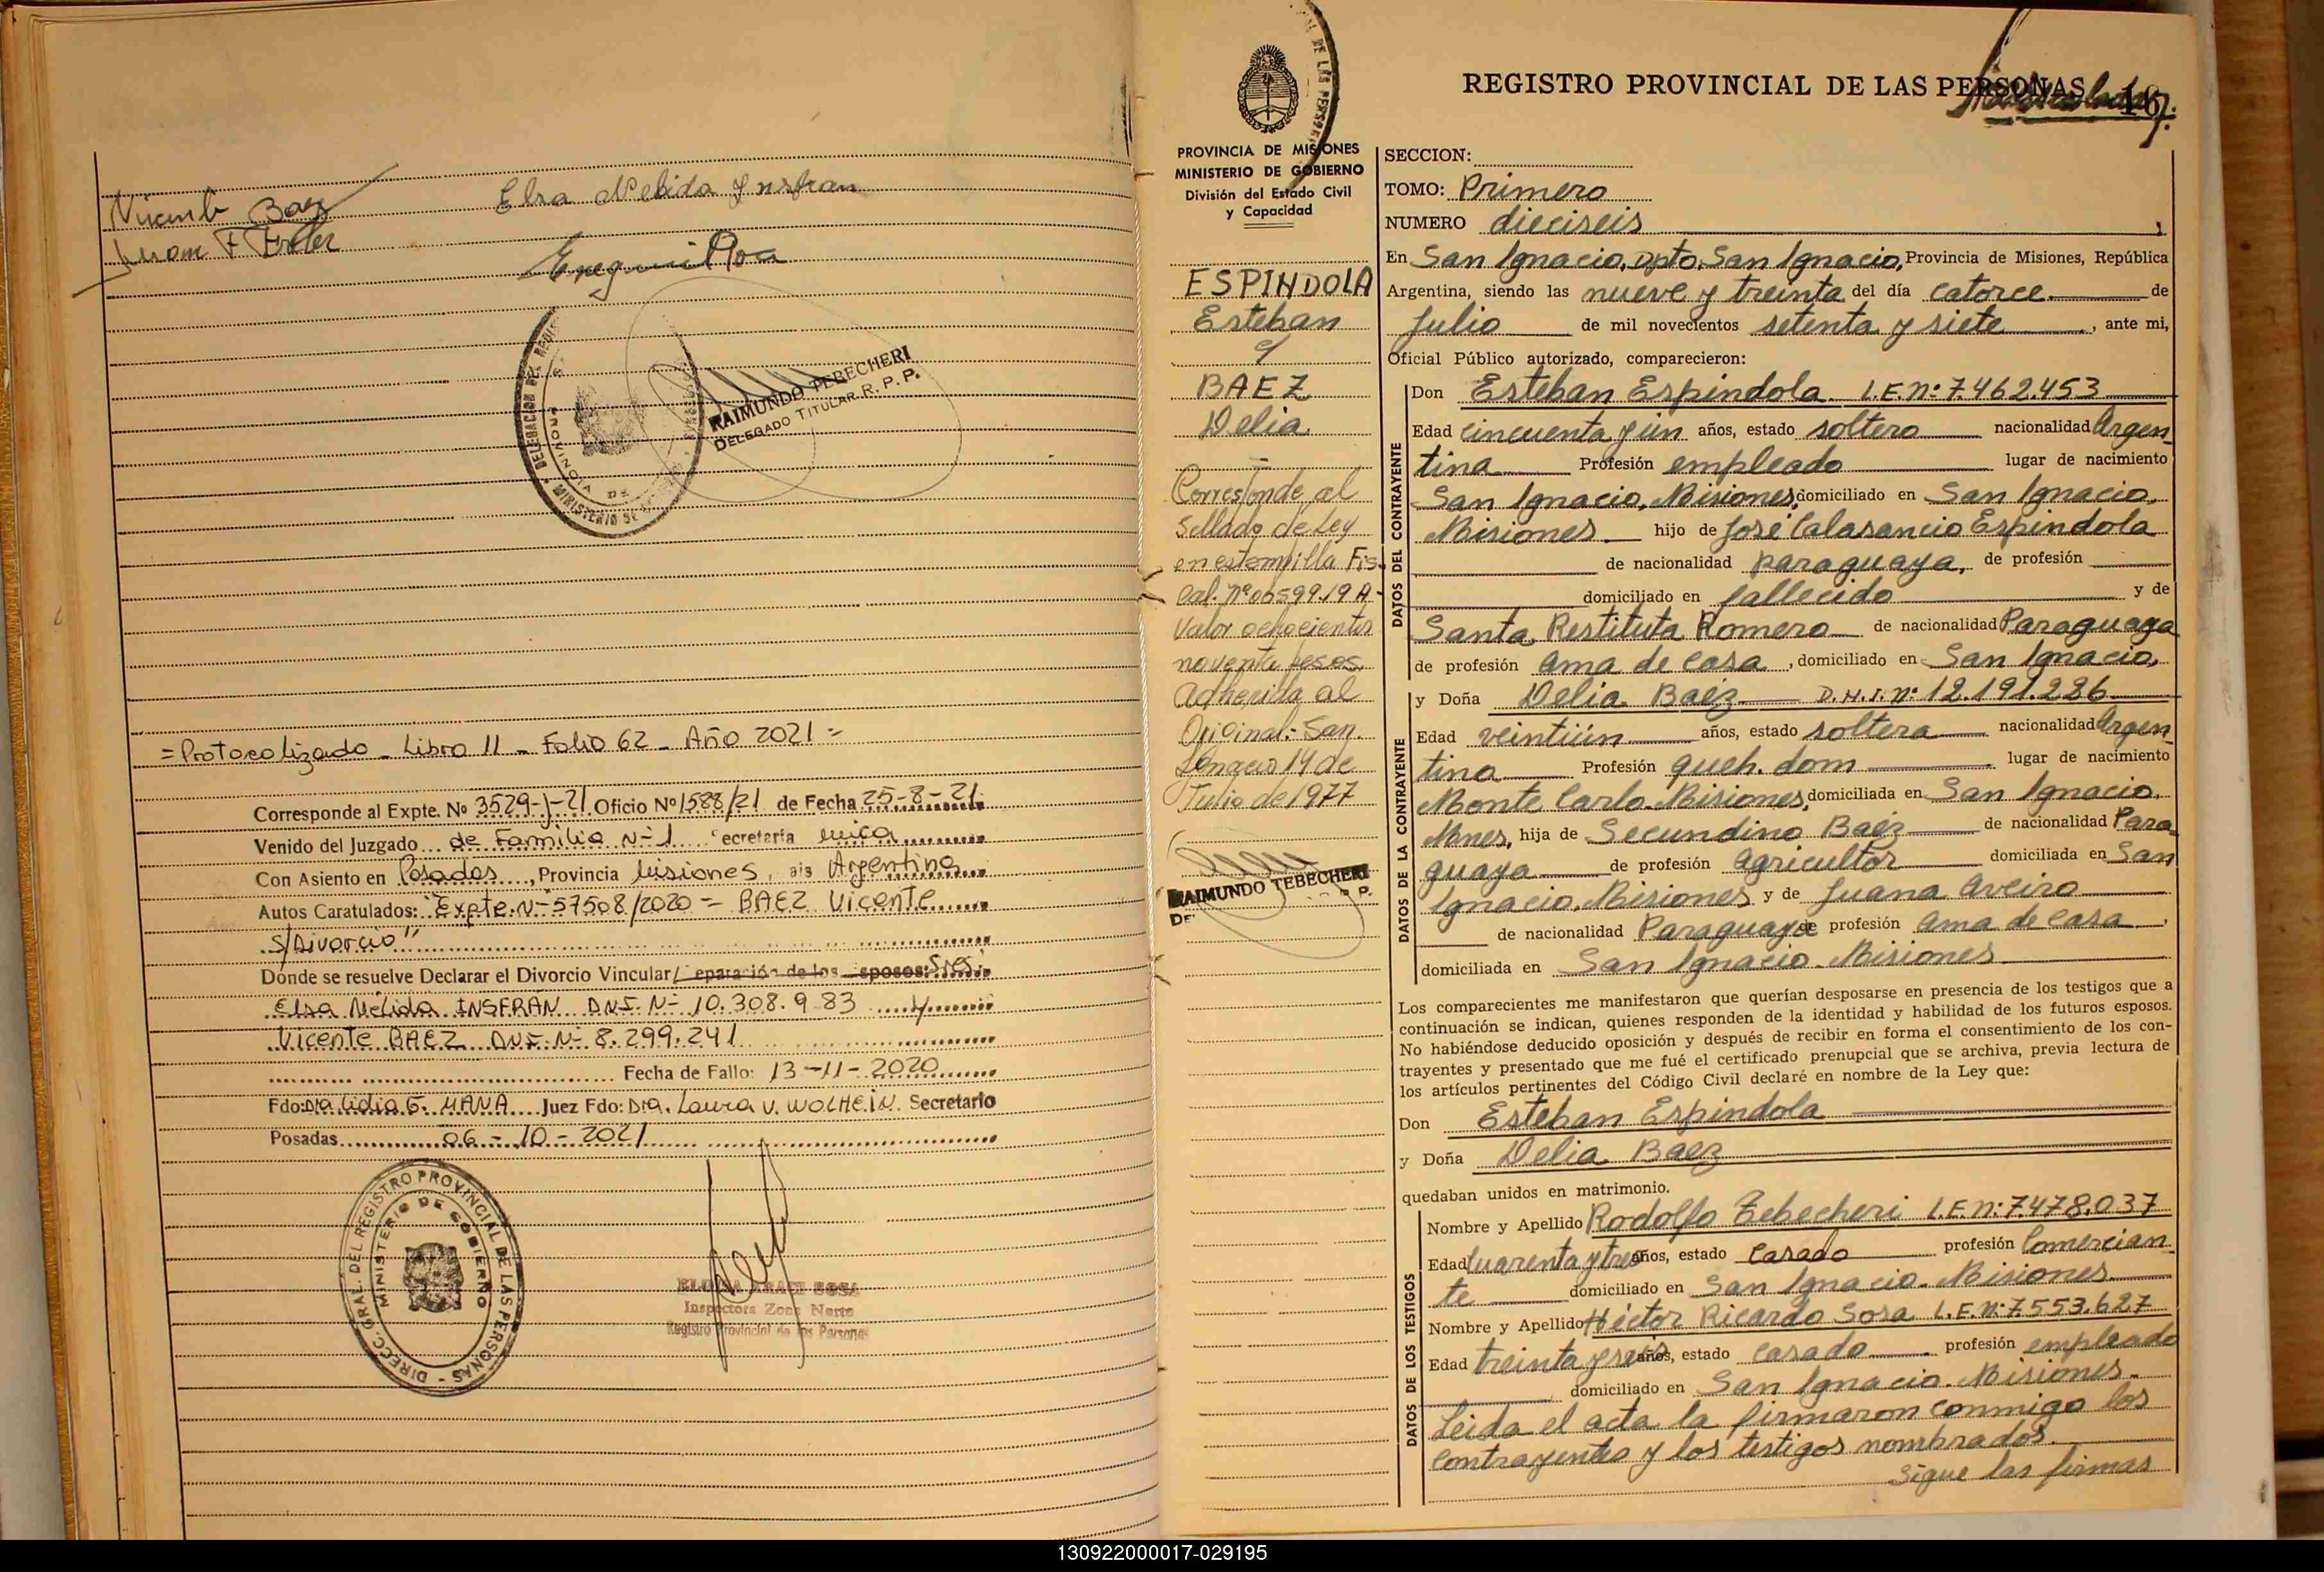 Vicente Baez
Elsa Nelida Insfran
Juan F
Roa
RAIMUNDO TEBECHERI
DELEGADO TITULAR R. P. P.
= Protocolizado - Libro 11 - Folio 62 - Año 2021 =
Corresponde al Expte. Nº 3529-J-21 Oficio Nº 1588/21 de Fecha 25-8-21
Venido del Juzgado de Familia Nº 1 Secretaria unica
Con Asiento en Posadas, Provincia Misiones, ais Argentina
Autos Caratulados: "Expte. Nº 57508/2020 = BAEZ Vicente
s/Divorcio"
Dónde se resuelve Declarar el Divorcio Vincular/ eparación de los sposos: Sres.
Elsa Nélida INSFRAN DNI. Nº 10.308.983 y
Vicente BAEZ DNI. Nº 8.299.241
Fecha de Fallo: 13-11-2020
Fdo: Dra Lidia G. MANA Juez Fdo: Dra. Laura V. WOLHEIN Secretario
Posadas 06-10-2021
DIRECC. GRAL. DEL REGISTRO PROVINCIAL DE LAS PERSONAS -
MINISTERIO DE GOBIERNO
SOSA
Inspectora Zona Norte
Registro Provincial de las Personas
REGISTRO PROVINCIAL DE LAS PERSONAS
PROVINCIA DE MISIONES
MINISTERIO DE GOBIERNO
División del Estado Civil
y Capacidad
ESPINDOLA
Esteban
y
BAEZ
Delia
Corresponde al
Sellado de Ley
en estampilla Fis-
cal. Nº 06599.19 A-
Valor ochocientos
noventa pesos
Adherida al
Original.- San
Ignacio 14 de
Julio de 1977
RAIMUNDO TEBECHERI
SECCION:
TOMO: Primero
NUMERO dieciseis
En San Ignacio, Dpto. San Ignacio, Provincia de Misiones, República
Argentina, siendo las nueve y treinta del día catorce de
Julio de mil novecientos setenta y siete, ante mi,
Oficial Público autorizado, comparecieron:
DATOS DEL CONTRAYENTE
Don Esteban Espindola L.E.nº 7.462.453
Edad cincuenta y un años, estado soltero nacionalidad Argen
tina Profesión empleado lugar de nacimiento
San Ignacio, Misiones, domiciliado en San Ignacio,
Misiones hijo de José Calasancio Espindola
de nacionalidad paraguaya, de profesión
domiciliado en fallecido y de
Santa Restituta Romero de nacionalidad Paraguaya
de profesión ama de casa, domiciliado en San Ignacio,
DATOS DE LA CONTRAYENTE
y Doña Delia Baéz D.N.I. nº 12.191.226
Edad veintiún años, estado soltera nacionalidad Argen
tina Profesión queh. dom lugar de nacimiento
Monte Carlo. Misiones, domiciliada en San Ignacio.
Mnes, hija de Secundino Baéz de nacionalidad Para
guaya de profesión Agricultor domiciliada en San
Ignacio, Misiones y de Juana Aveiro
de nacionalidad Paraguaya de profesión ama de casa,
domiciliada en San Ignacio. Misiones
Los comparecientes me manifestaron que querían desposarse en presencia de los testigos que a
continuación se indican, quienes responden de la identidad y habilidad de los futuros esposos.
No habiéndose deducido oposición y después de recibir en forma el consentimiento de los con-
trayentes y presentado que me fué el certificado prenupcial que se archiva, previa lectura de
los artículos pertinentes del Código Civil declaré en nombre de la Ley que:
Don Esteban Espindola
y Doña Delia Baez
quedaban unidos en matrimonio.
DATOS DE LOS TESTIGOS
Nombre y Apellido Rodolfo Tebecheri L.E.nº 7.478.037
Edad Cuarenta y tres años, estado casado profesión Comercian
te domiciliado en San Ignacio. Misiones
Nombre y Apellido Héctor Ricardo Sosa L.E.Nº 7.553.627
Edad treinta y seis años, estado casado profesión empleado
domiciliado en San Ignacio. Misiones.
Leida el acta la firmaron conmigo los
contrayentes y los testigos nombrados.
Sigue las firmas
130922000017-029195